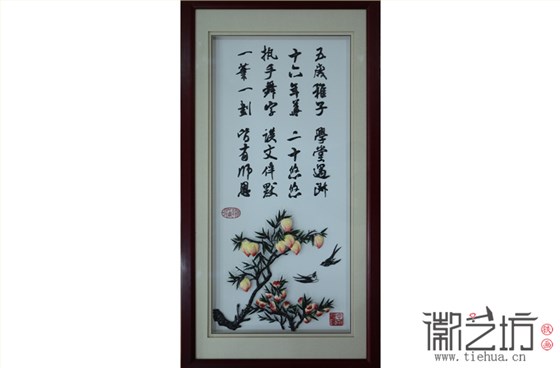 五歲稚子 學堂遇琳
十六年華 二十悠悠
執手舞字 談文伴默
一筆一劃 皆有師恩
徽艺坊
铁画
www.tiehua.cn